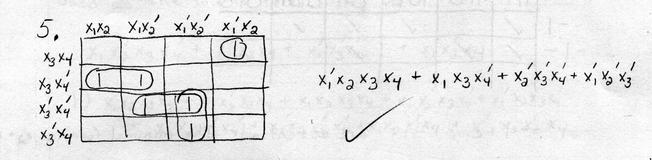 5.
x₁x₂ x₁x₂′ x₁′x₂′ x₁′x₂
x₃x₄ 1
x₃x₄′ 1 1
x₃′x₄′ 1 1
x₃′x₄ 1
x₁′x₂x₃x₄ + x₁x₃x₄′ + x₂′x₃′x₄′ + x₁′x₂′x₃′